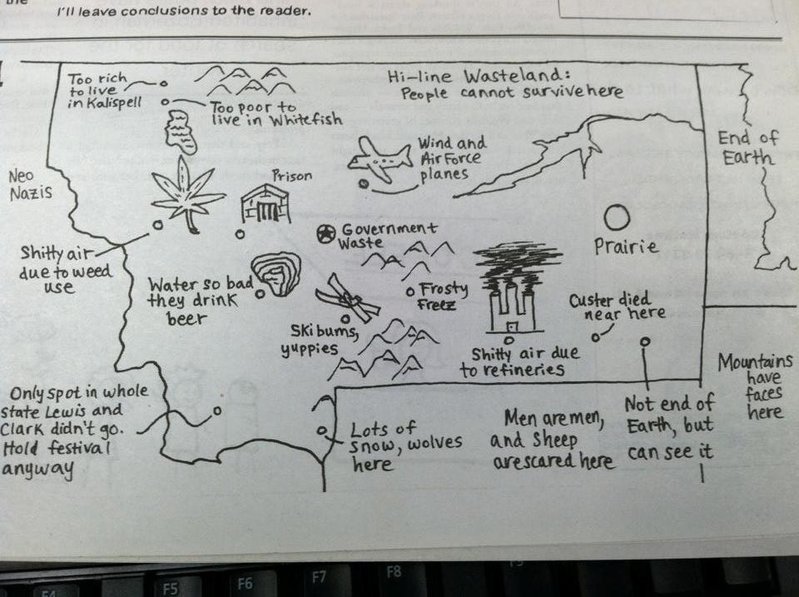 the
I'll leave conclusions to the reader.
Too rich
to live
in Kalispell
Too poor to
live in Whitefish
Hi-line Wasteland:
People cannot survive here
End of
Earth
Neo
Nazis
Prison
Wind and
Air Force
planes
Shitty air
due to weed
use
Government
Waste
Prairie
Water so bad
they drink
beer
Frosty
Freez
Custer died
near here
Ski bums,
yuppies
Shitty air due
to refineries
Mountains
have
faces
here
Only spot in whole
state Lewis and
Clark didn't go.
Hold festival
anyway
Lots of
snow, wolves
here
Men are men,
and sheep
are scared here
Not end of
Earth, but
can see it
F4
F5
F6
F7
F8